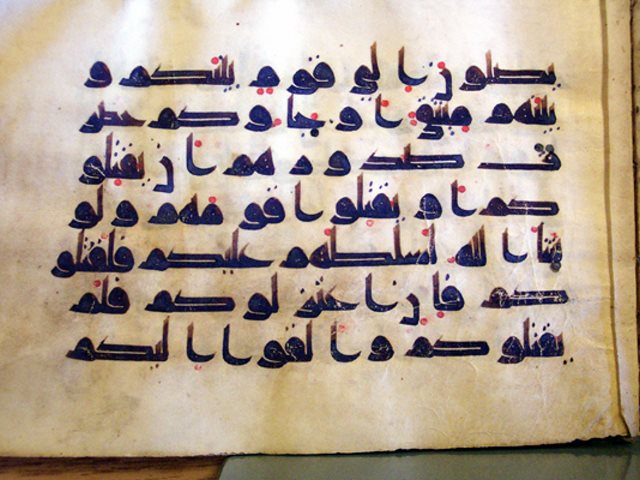 يصلون الى قوم بينكم و
بينهم ميثق او جاوكم حصر
ت صدورهم ان يقتلو
كم او يقتلوا قومهم ولو
شا الله لسلطهم عليكم فلقتلو
كم فان اعتزلوكم فلم
يقتلوكم والقوا اليكم